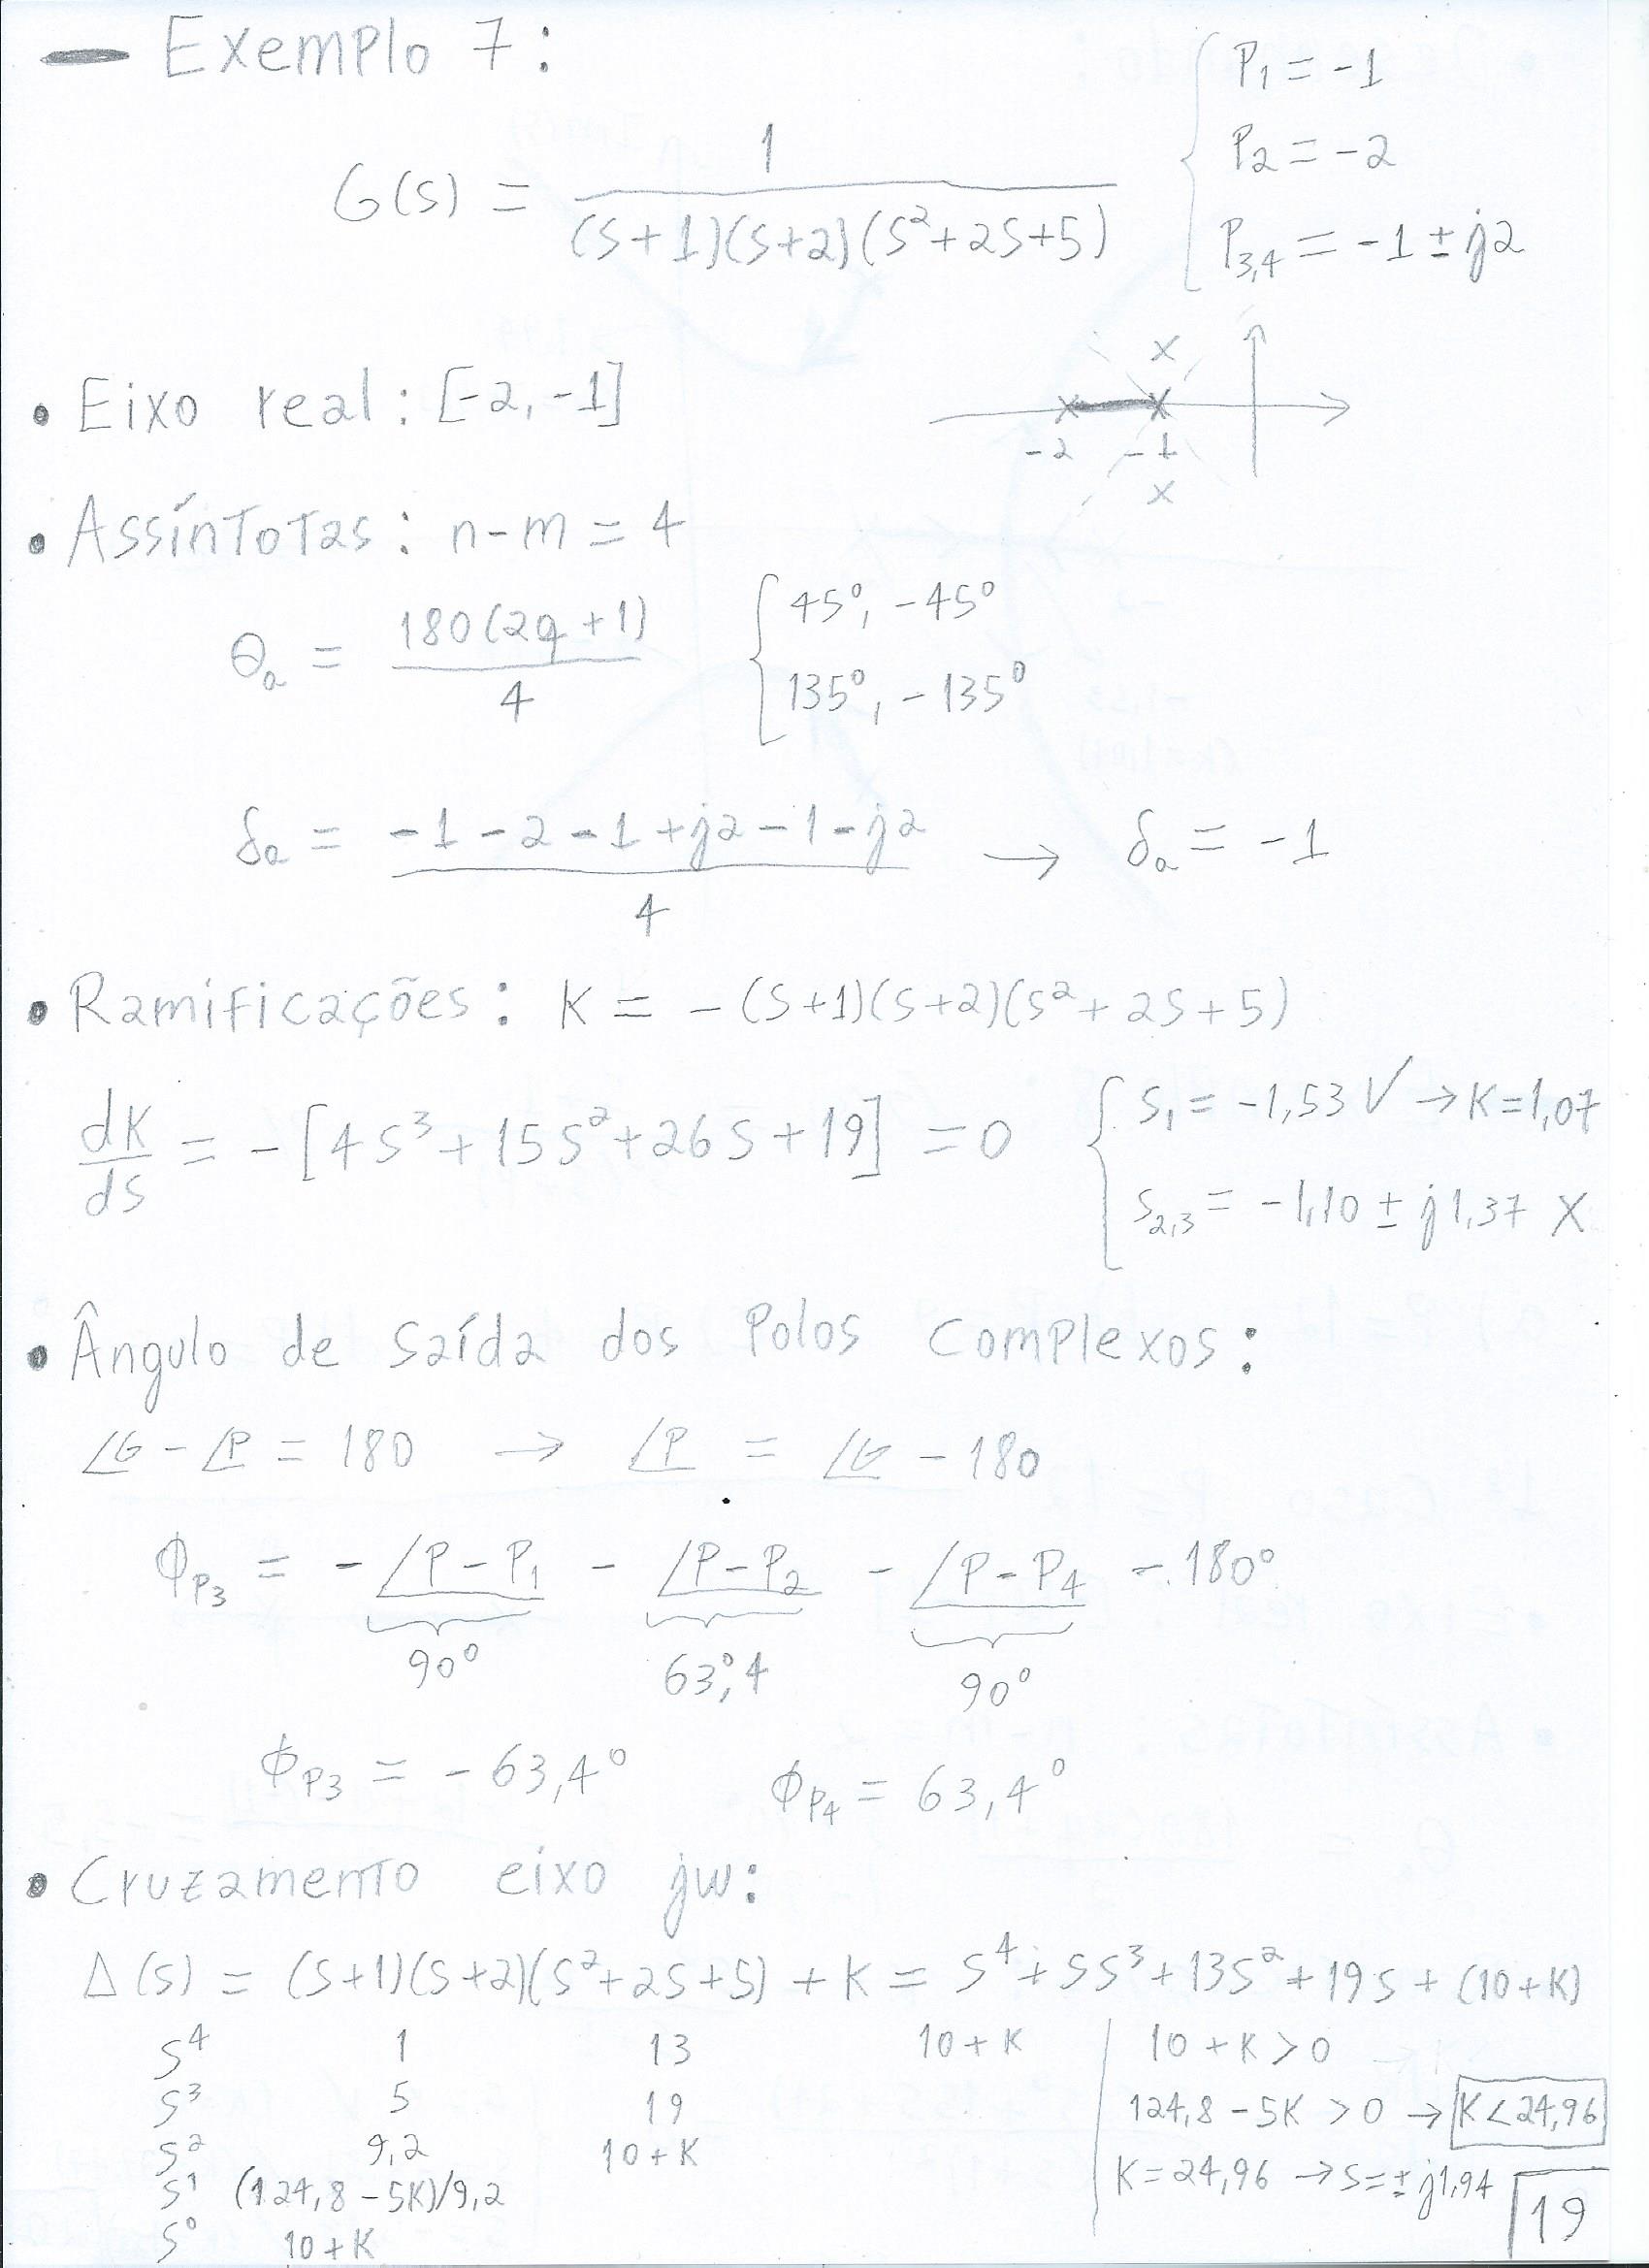 — Exemplo 7:
G(s) = 1 / (s+1)(s+2)(s²+2s+5)
P₁ = -1
P₂ = -2
P₃,₄ = -1 ± j2
• Eixo real: [-2, -1]
-2 -1
• Assíntotas: n-m = 4
θₐ = 180(2q+1) / 4
45°, -45°
135°, -135°
δₐ = (-1 -2 -1 +j2 -1 -j2) / 4 → δₐ = -1
• Ramificações: K = -(s+1)(s+2)(s²+2s+5)
dK/ds = -[4s³+15s²+26s+19] = 0
s₁ = -1,53 ✓ → K=1,07
s₂,₃ = -1,10 ± j1,37 X
• Ângulo de saída dos polos complexos:
∠G - ∠P = 180 → ∠P = ∠G - 180
ϕP₃ = -∠P-P₁ - ∠P-P₂ - ∠P-P₄ - 180°
90° 63°,4 90°
ϕP₃ = -63,4° ϕP₄ = 63,4°
• Cruzamento eixo jw:
Δ(s) = (s+1)(s+2)(s²+2s+5) + K = s⁴+5s³+13s²+19s+(10+K)
s⁴ 1 13 10+K
s³ 5 19
s² 9,2 10+K
s¹ (124,8-5K)/9,2
s⁰ 10+K
10+K>0
124,8-5K >0 → K<24,96
K=24,96 → s=±j1,94
19